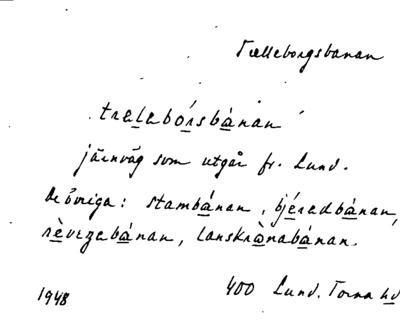 Trelleborgsbanan
treleborsbànan
järnväg som utgår fr. Lund.
De övriga: stambánan, bjéredbánan,
rèvezebánan, lanskrànabánan.
400 Lund. Torna hd
1948